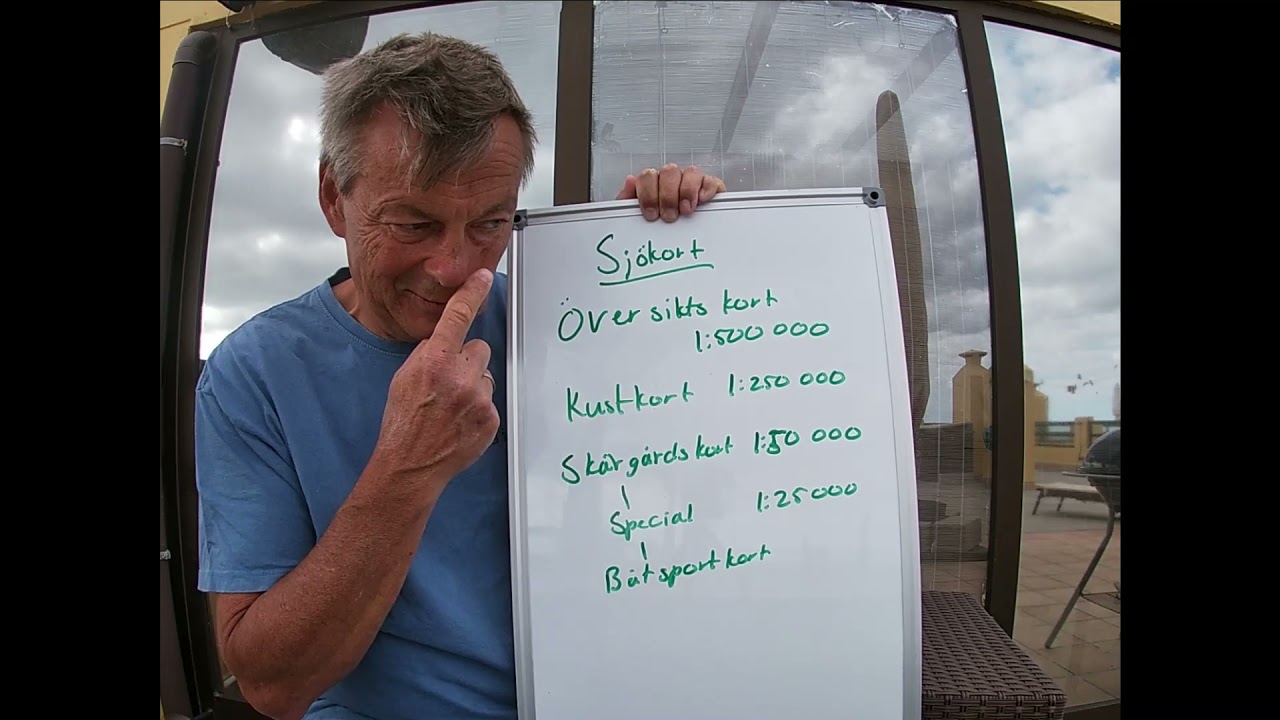 Sjökort
Översikts kort
1:500 000
Kustkort 1:250 000
Skärgårdskort 1:50 000
Special 1:25000
Båtsportkort